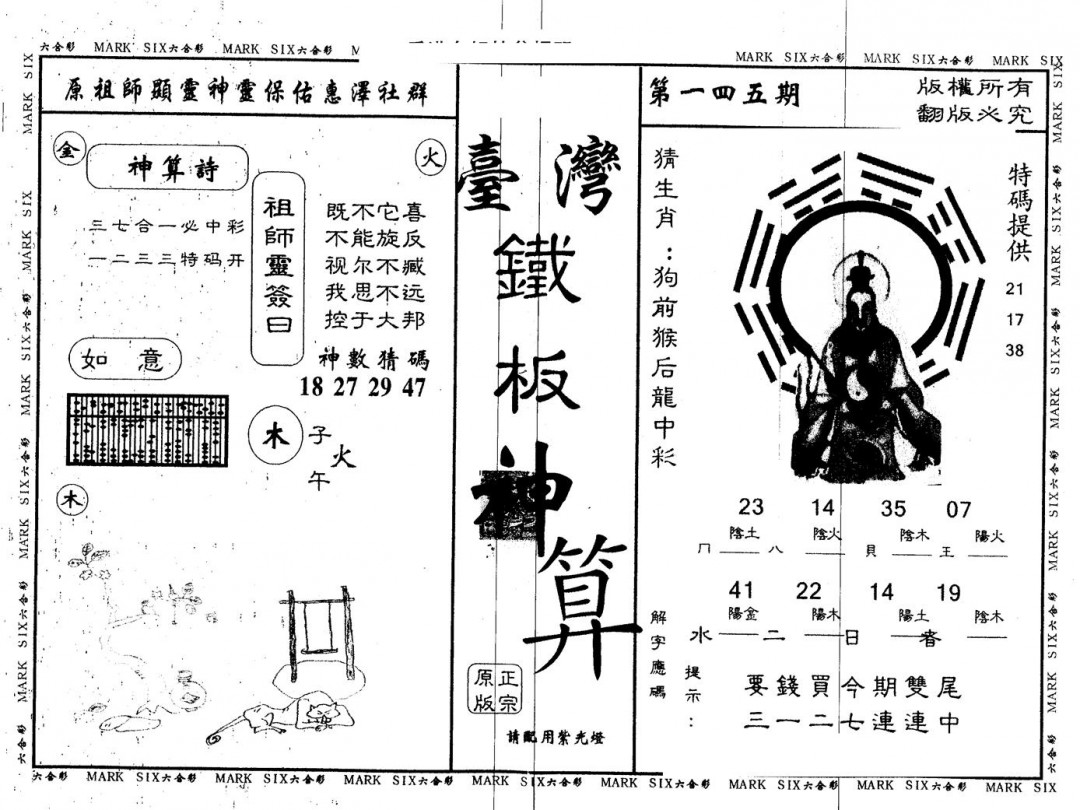 六合彩 MARK SIX六合彩 MARK SIX六合彩 M
MARK SIX六合彩 MARK SIX六合彩 MARK SIX
原祖師顯靈神靈保佑惠澤社群
金
神算詩
三七合一必中彩
一二三三特码开
如意
火
祖師靈簽曰
既不它喜
不能旋反
视尔不臧
我思不远
控于大邦
神數猜碼
18 27 29 47
木
子
火
午
木
臺灣
鐵
板
神
算
正宗
原版
請配用紫光燈
第一四五期
版權所有
翻版必究
猜生肖:狗前猴后龍中彩
特碼提供
21
17
38
23 14 35 07
陰土 陰火 陰木 陽火
冂 八 貝 王
41 22 14 19
陽金 陽木 陽土 陰木
水 二 日 春
解字應碼
提示:
要錢買今期雙尾
三一二七連連中
六合彩 MARK SIX六合彩 MARK SIX六合彩 MARK SIX六合彩 MARK SIX六合彩 MARK SIX六合彩 MARK SIX六合彩 MARK SIX六合彩 MARK SIX